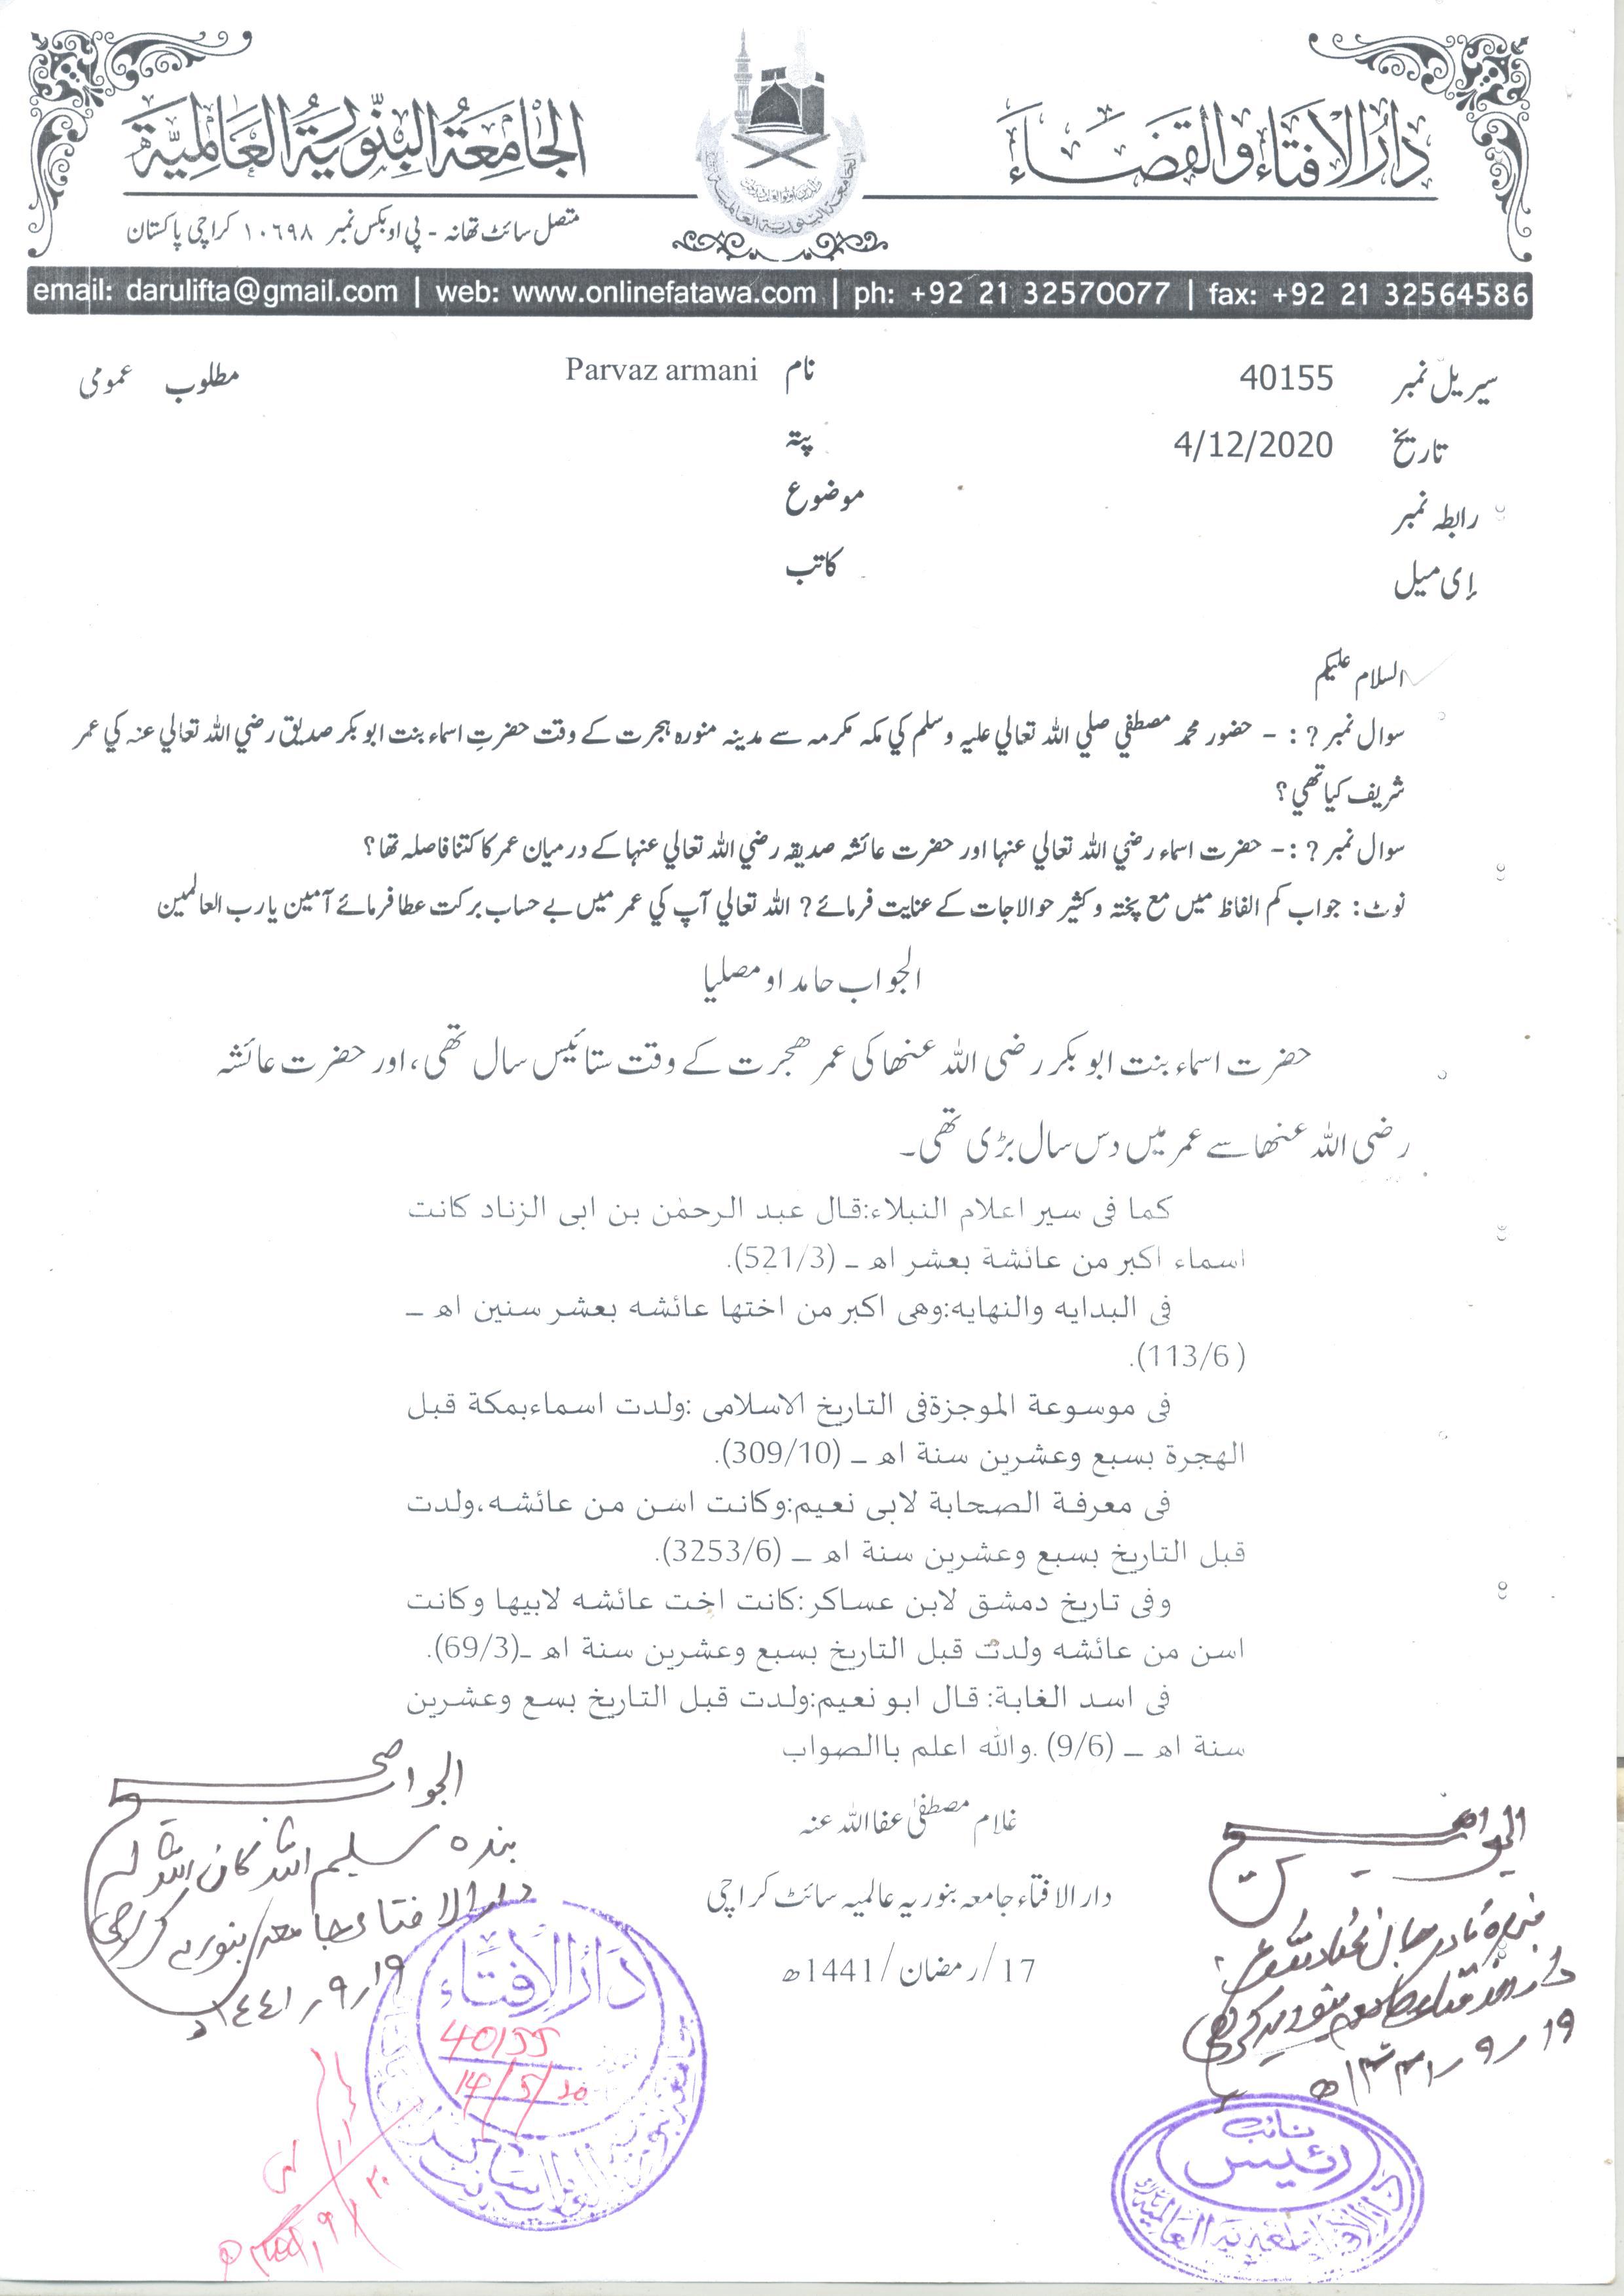 دار الافتاء والقضاء
الجامعة البنورية العالمية
متصل سائٹ تھانہ - پی او بکس نمبر ۱۰۶۹۸ کراچی پاکستان
email: darulifta@gmail.com | web: www.onlinefatawa.com | ph: +92 21 32570077 | fax: +92 21 32564586
سیریل نمبر 40155 نام Parvaz armani مطلوب عمومی
تاریخ 4/12/2020 پتہ
رابطہ نمبر موضوع
إی میل کاتب
السلام علیکم
سوال نمبر ? : - حضور محمد مصطفي صلي اللہ تعالي علیہ وسلم کي مکہ مکرمہ سے مدینہ منورہ ہجرت کے وقت حضرتِ اسماء بنت ابو بکر صدیق رضي اللہ تعالي عنہ کي عمر
شریف کیا تھي؟
سوال نمبر ? :- حضرت اسماء رضي اللہ تعالي عنہا اور حضرت عائشہ صدیقہ رضي اللہ تعالي عنہا کے درمیان عمر کا کتنا فاصلہ تھا؟
نوٹ: جواب کم الفاظ میں مع پختہ و کثیر حوالاجات کے عنایت فرمائے? اللہ تعالي آپ کي عمر میں بے حساب برکت عطا فرمائے آمین یا رب العالمین
الجواب حامدا و مصلیا
حضرت اسماء بنت ابو بکر رضی اللہ عنھا کی عمر ھجرت کے وقت ستائیس سال تھی، اور حضرت عائشہ
رضی اللہ عنھا سے عمر میں دس سال بڑی تھی۔
کما فی سیر اعلام النبلاء:قال عبد الرحمٰن بن ابی الزناد کانت
اسماء اکبر من عائشة بعشر اھ ـ (521/3).
فی البدایه والنهایه:وهی اکبر من اختها عائشه بعشر سنین اھ ـ
(113/6).
فی موسوعة الموجزةفی التاریخ الاسلامی :ولدت اسماءبمکة قبل
الهجرة بسبع وعشرین سنة اھ ـ (309/10).
فی معرفة الصحابة لابی نعیم:وکانت اسن من عائشه،ولدت
قبل التاریخ بسبع وعشرین سنة اھ ـ (3253/6).
وفی تاریخ دمشق لابن عساکر:کانت اخت عائشه لابیها وکانت
اسن من عائشه ولدت قبل التاریخ بسبع وعشرین سنة اھ ـ(69/3).
فی اسد الغابة: قال ابو نعیم:ولدت قبل التاریخ بسع وعشرین
سنة اھ ـ (9/6) .والله اعلم باالصواب
غلام مصطفیٰ عفا اللہ عنہ
دار الافتاء جامعہ بنوریہ عالمیہ سائٹ کراچی
17/رمضان/1441ھ
الجواب صحیح
بندہ سلیم اللہ کان اللہ لہ
دار الافتاء جامعہ بنوریہ کراچی
۱۹/۹/۱٤٤۱ھ
الجواب صحیح
دار الافتاء جامعہ بنوریہ کراچی
۱۹/۹/۱۴۴۱ھ
دار الإفتاء
40155
14/5/20
نائب
رئیس